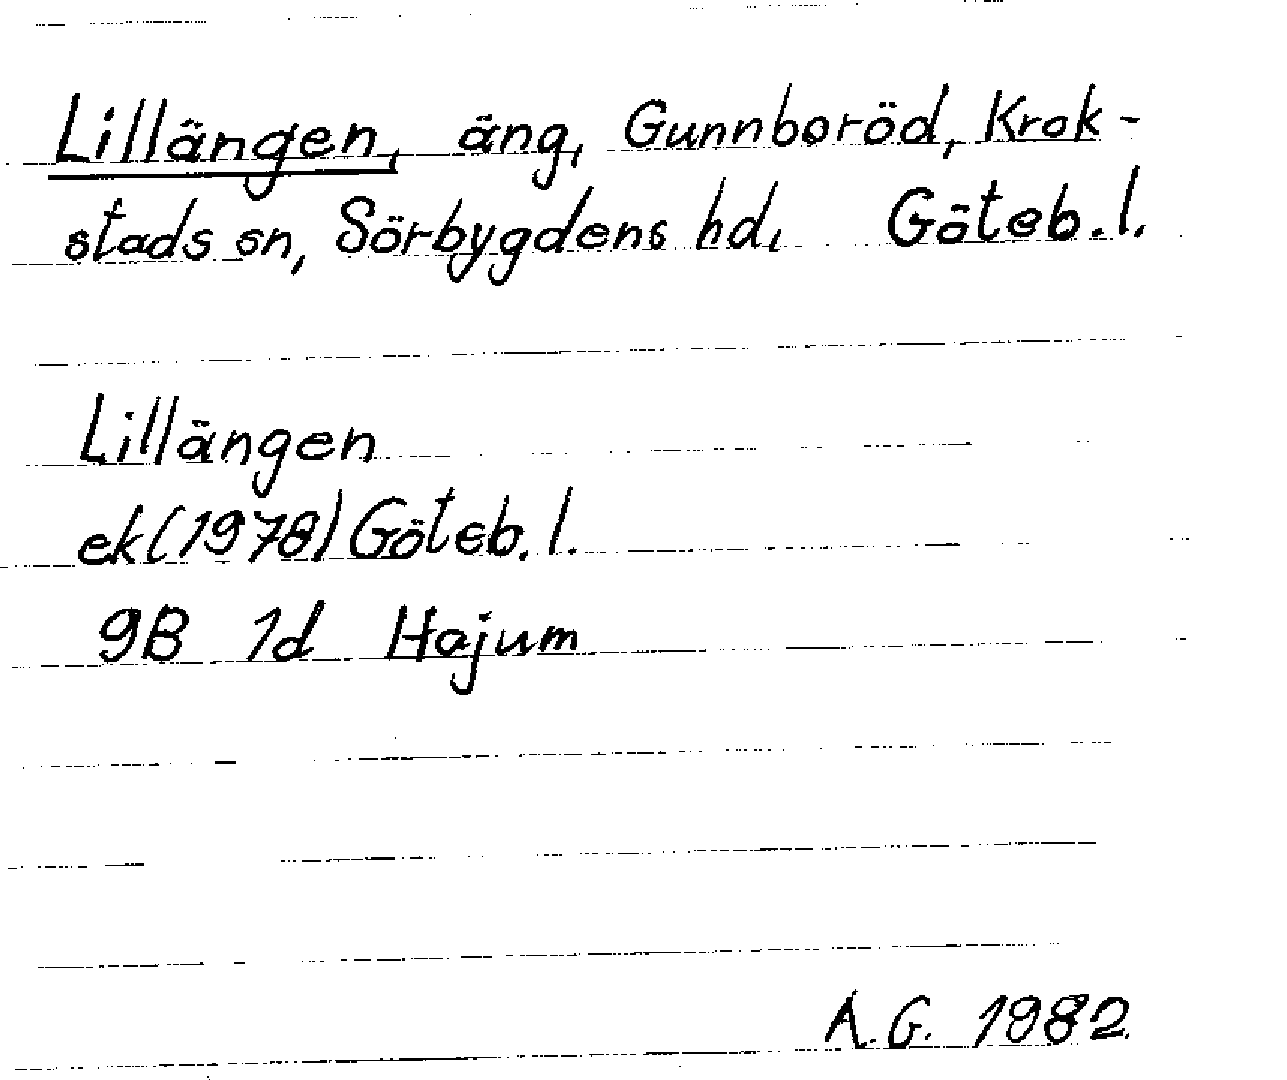 Lillängen, äng, Gunnboröd, Krok-
stads sn, Sörbygdens hd, Göteb.l.
Lillängen
ek(1978) Göteb.l.
9B 1d Hajum
A.G. 1982